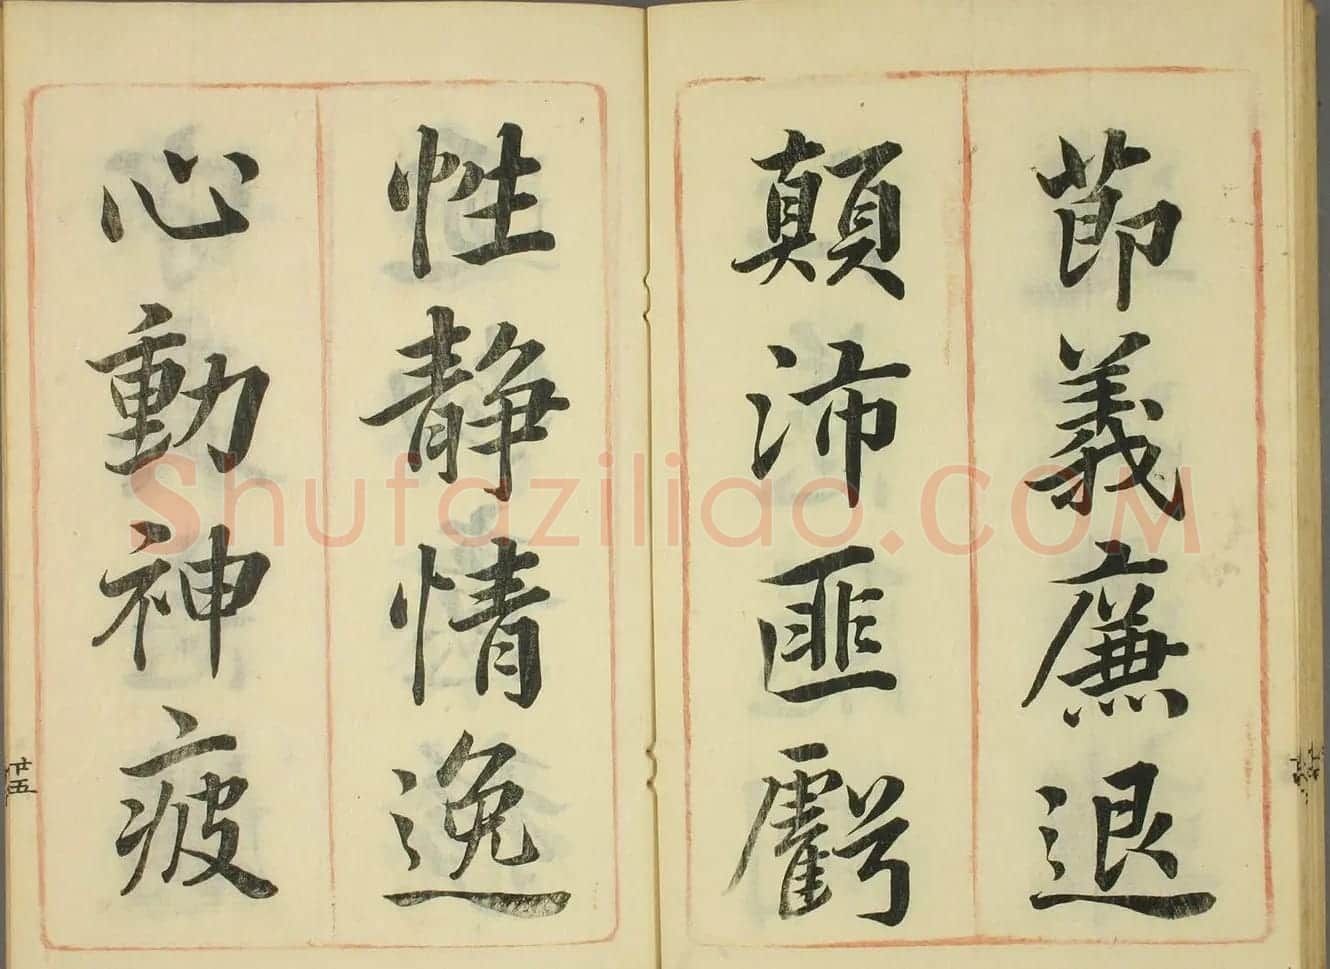 節義廉退
顛沛匪虧
性静情逸
心動神疲
廿五
Shufaziliao.COM